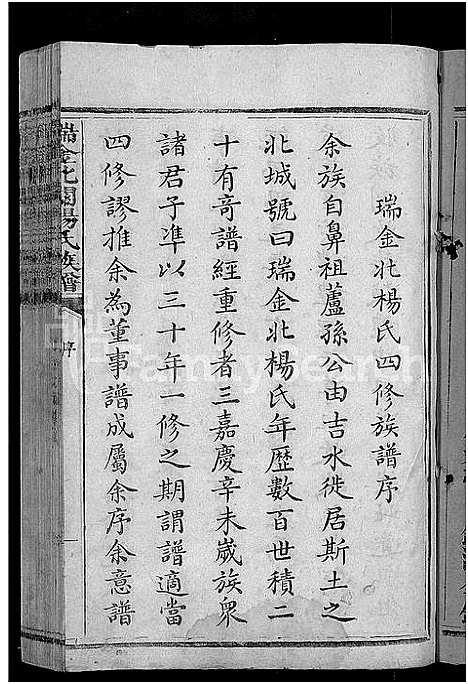 瑞金北楊氏四修族譜序
余族自鼻祖蘆孫公由吉水徙居斯土之
北城號曰瑞金北楊氏年歷數百世積二
十有奇譜經重修者三嘉慶辛未嵗族衆
諸君子準以三十年一修之期謂譜適當
四修謬推余為董事譜成屬余序余意譜
瑞金北關楊氏族譜
序
FamilySearch